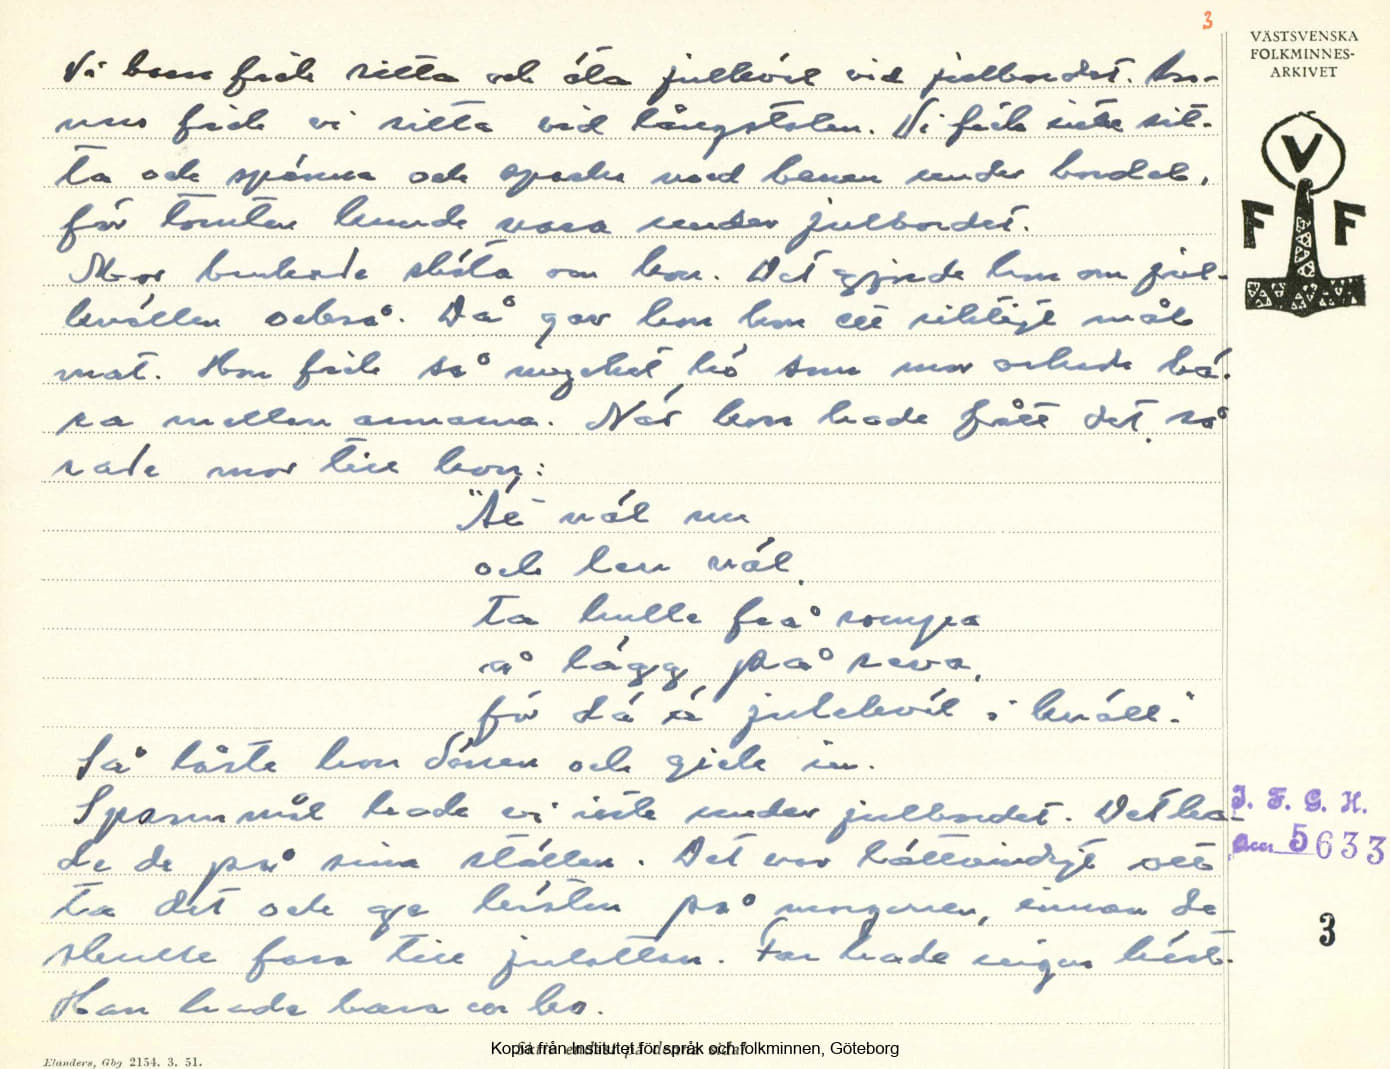 3
VÄSTSVENSKA
FOLKMINNES-
ARKIVET
V
F F
Vi barn fick sitta och äta julkväll vid julbordet. An-
nars fick vi sitta vid långstolen. Vi fick inte sit-
ta och spänna och sparka med benen under bordet,
för tomten kunde vara under julbordet.
Mor brukade sköta om kon. Det gjorde hon om jul-
kvällen också. Då gav hon kon ett riktigt mål
mat. Hon fick så mycket hö som mor orkade bä-
ra mellan armarna. När kon hade fått det, så
sade mor till kon:
"Ät väl nu
och lev väl,
ta hulle frå rompa
å lägg på reva,
för dä ä julekväll i kväll."
Så låste hon dörren och gick in.
Spannmål hade vi inte under julbordet. Det ha-
de de på sina ställen. Det var hållvindigt att
ta det och ge hästen på morgonen, innan de
skulle fara till julottan. Far hade ingen häst.
Han hade bara en ko.
I. F. G. H.
acc 5633
3
Elanders, Gbg 2154. 3. 51.
Kopia från Institutet för språk och folkminnen, Göteborg